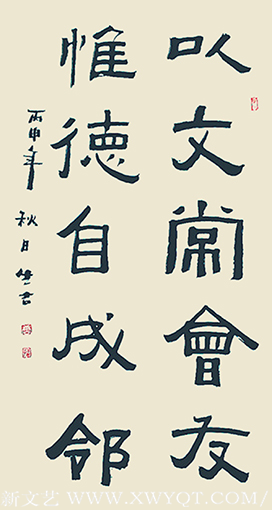 以文常會友
惟德自成邻
丙申年
秋月
新文艺 WWW.XWYQT.COM/